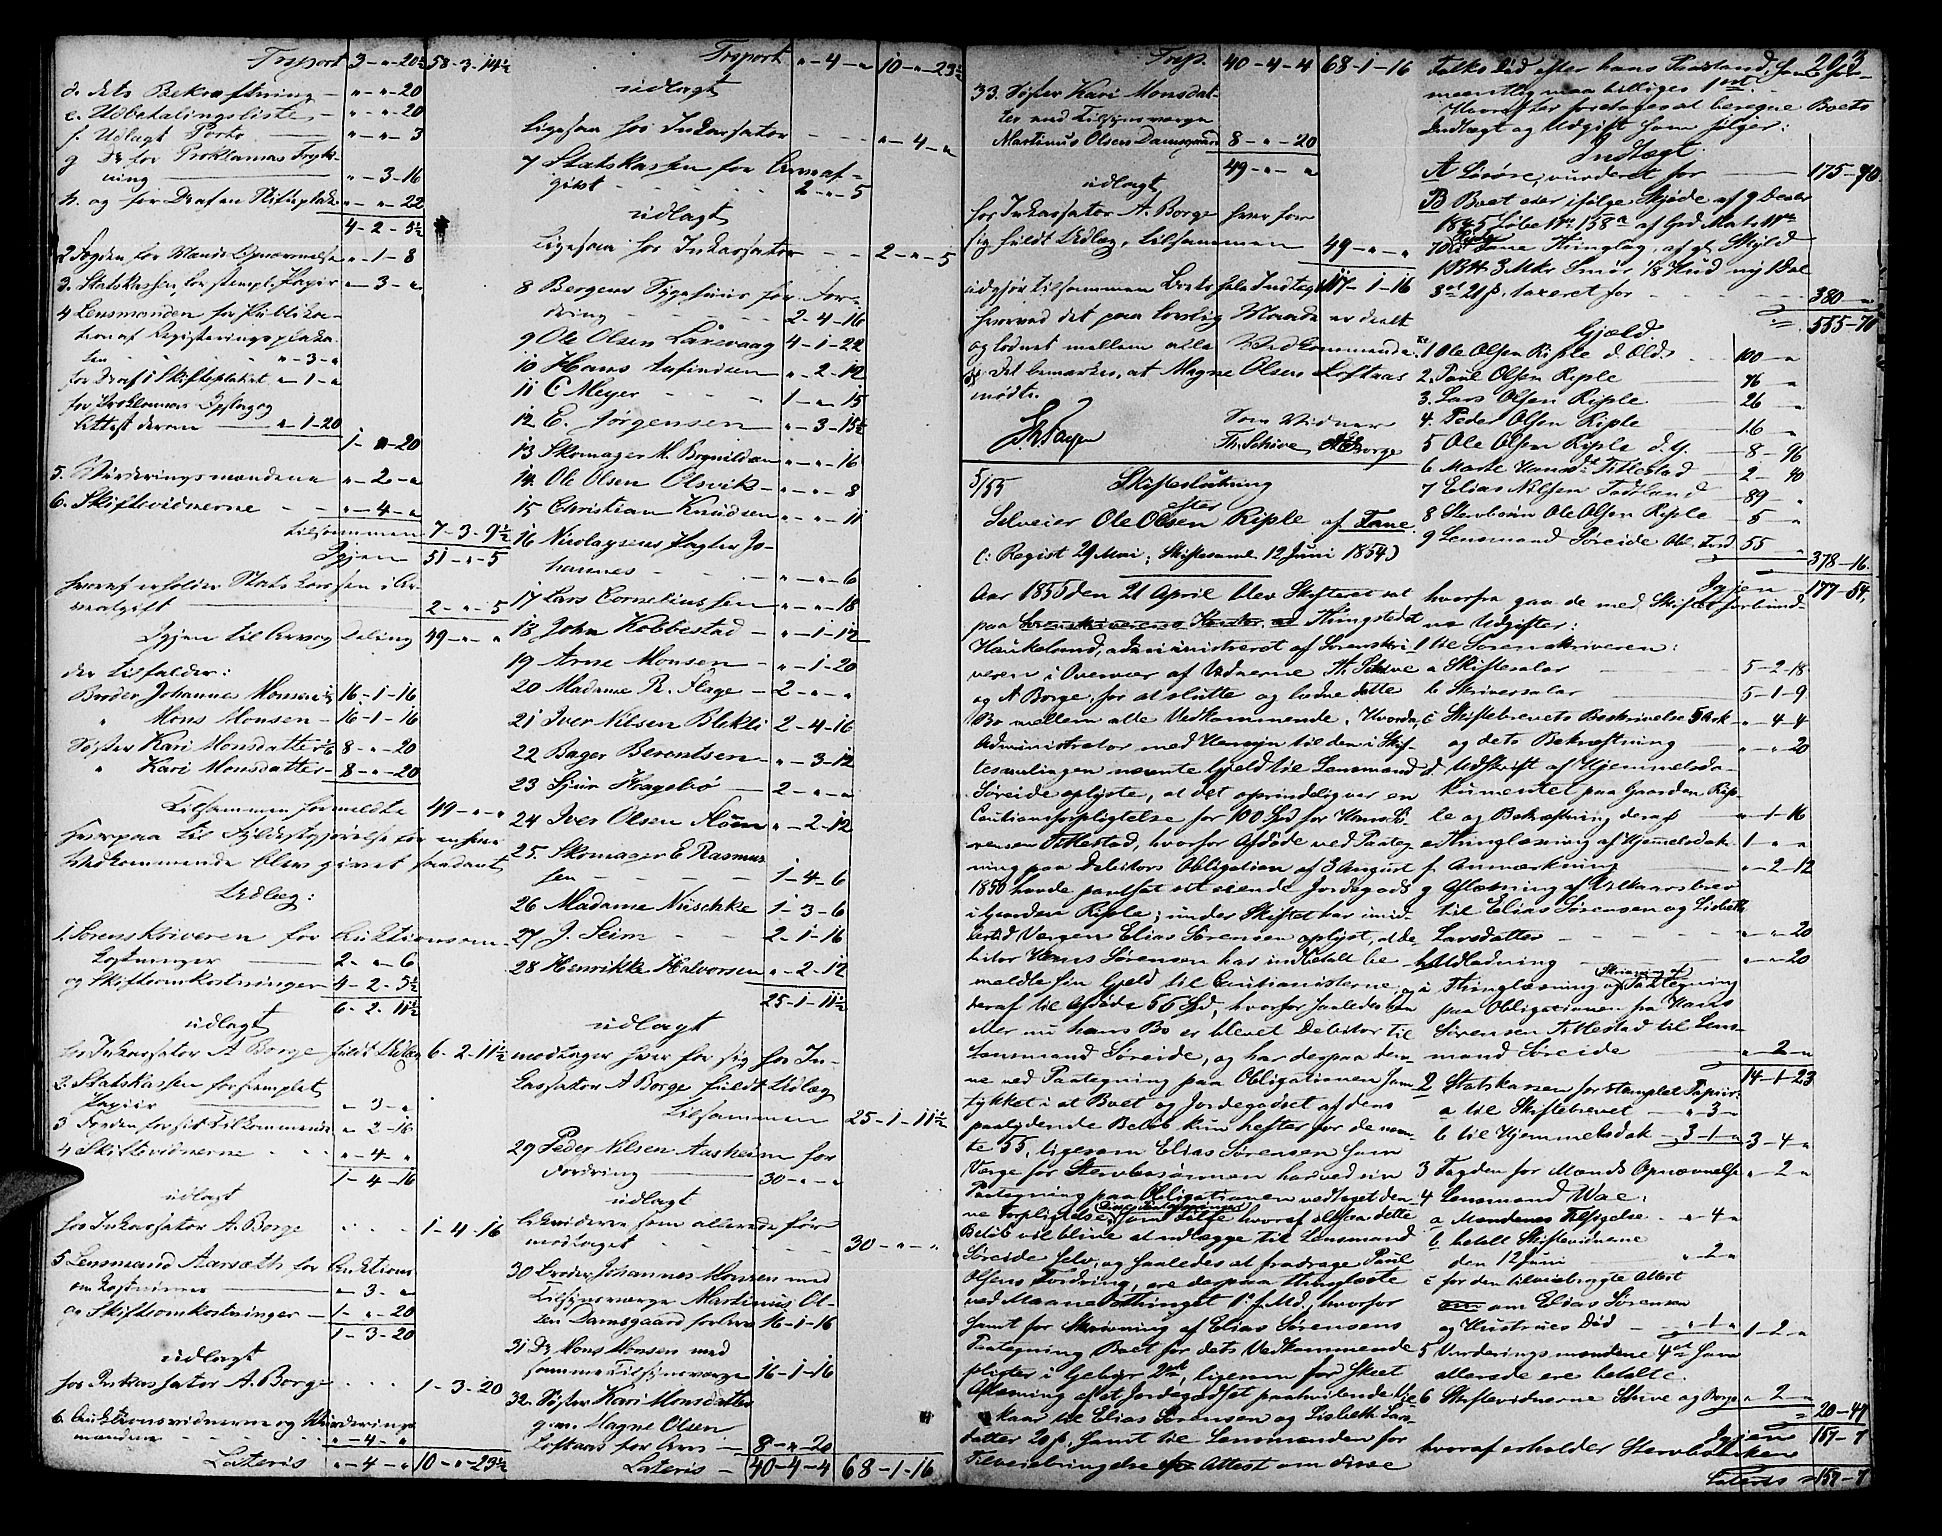 Trsport 3-"-20½ 58-3-14½
d. dets Bekræftning "-"-20
e. Udbetalingsliste "-"-20
f. Udlagt Porto "-"-3
g Do for Proklamas Tryk-
ning "-3-16
h. og for Draf en Skifteplakat "-"-22
4-2-5½
2 Fogden for Mænds Opnævnelse "-1-8
3. Statskassen for stempl. Papir "-3-"
4 Lensmanden for Publika-
tion af Registeringsplaka-
ten "-3-"
for Draf i Skifteplakat "-1-"
for Proklamas Opslag og
Attest derom "-1-20
1-"-20
5. Vurderingsmændene "-2-"
6. Skiftevidnerne "-4-"
tilsammen 7-3-9½
Igjen 51-"-5
hvoraf erholder Statskassen i Ar-
veafgift 2-"-5
Igjen til Arv og Deling 49-"-"
der tilfalder:
Broder Johannes Monsen 16-1-16
" Mons Monsen 16-1-16
Søster Kari Monsdatter 8-"-20
" Kari Monsdatter 8-"-20
Tilsammen formeldte 49-"-"
hvorpaa til Fyldestgjørelse for enhver
Vedkommende blev gjøret saadant
Udlæg:
1. Sorenskriveren for Auktionsom-
kostninger 2-"-6
og Skifteomkostninger 4-2-5½
6-2-11½
udlagt
hos Inkassator A Borge fuldt Udlæg 6-2-11½
2. Statskassen for stemplet
Papiir "-3-"
3 Fogden for sit Tilkommende "-2-16
4 Skiftevidnerne "-4-"
1-4-16
udlagt
hos Inkassator A. Borge 1-4-16
5 Lensmand Aarsæth for Auktions-
omkostninger "-3-"
og Skifteomkostninger 1-"-20
1-3-20
udlagt
hos Inkassator A. Borge 1-3-20
6. Auktionsvidnerne og Vurderings-
mændene "-4-"
Lateris "-4-" 10-"-23½
Trsport "-4-" 10-"-23½
udlagt
Ligesaa hos Inkassator "-4-"
7 Statskassen for Arveaf-
gift 2-"-5
udlagt
Ligesaa hos Inkassator 2-"-5
8 Bergens Sygehuus for For-
dring 2-4-16
9 Ole Olsen Laxevaag 4-1-22
10 Hans Anfindsen "-2-12
11 C Meyer 1-"-15
12 E. Jørgensen "-3-15½
13 Skomager M. Brynildsen "-"-16
14. Ole Olsen Olsvik "-"-8
15 Christian Knudsen "-"-11
16 Nicolaysens Pagter Jo-
hannes "-"-6
17 Lars Corneliussen "-"-18
18 John Kobbestad "-1-12
19 Arne Monsen "-1-20
20 Madame R. Flage 2-"-"
21 Iver Nilsen Blekli 2-4-16
22 Bager Berentsen "-3-12
23 Sjur Hagebø 2-"-"
24 Iver Olsen Fløen "-2-12
25. Skomager E. Rasmus-
sen 1-4-6
26 Madame Nitschke 1-3-6
27 J. Seim 2-1-16
28 Henrikke Halvorsen "-2-12
25-1-11½
udlagt
modtager hver for sig hos In-
kassator A Borge fuldt Udlæg
Tilsammen 25-1-11½
29 Peder Nilsen Aasheim for
Fordring 30-"-"
udlagt
likviderer som allerede før
modtaget 30-"-"
30 Broder Johannes Monsen med
Tilsynsværge Martinus Ol-
sen Damsgaard for Arv 16-1-16
31 Do Mons Monsen med
samme Tilsynsværge 16-1-16
32. Søster Kari Monsdatter
g. m. Magne Olsen
Loftaas for Arv 8-"-20
Lateris 40-4-4 68-1-16
Trsp. 40-4-4 68-1-16
33. Søster Kari Monsdat-
ter med Tilsynsværge
Martinus Olsen Damsgaard 8-"-20
49-"-"
udlagt
hos Inkassator A. Borge hver for
sig fuldt Udlæg, tilsammen 49-"-"
udgjør tilsammen Boets hele Indtægt 117-1-16
hvorved det paa lovlig Maade er deelt
og lodnet mellem alle Vedkommende.
Det bemærkes, at Magne Olsen Loftaas
mødte.
Som Vidner
Th. Schive A Borge
5/55 Skifteslutning
efter
Selveier Ole Olsen Riple af Fane
(: Regist 29 Mai, Skiftesaml 12 Juni 1854)
Aar 1855 den 21 April blev Skifteret sat
paa Sorenskriverens Kontor ved Thingstedet
Haukeland, administreret af Sorenskri-
veren i Overvær af Vidnerne Th. Schive
og A Borge, for at slutte og lodne dette
Bo mellem alle Vedkommende. Hvorda,
Administrator med Hensyn til den i Skif-
tesamlingen nævnte Gjeld til Lensmand
Søreide oplyste, at det oprindelig var en
Cautionsforpligtelse for 100 Spd for Hans Sø-
rensen Tittestad, hvorfor Afdøde ved Paateg-
ning paa Debitors Obligation af 3 August
1850 havde pantsat sit eiende Jordegods
i Gaarden Riple; under Skiftet har imid-
lertid Værgen Elias Sørensen oplyst, at De-
bitor Hans Sørensen har indbetalt be-
meldte sin Gjeld til Cautionisterne, og
deraf til Afdøde 55 Spd, hvorfor saaledes han
eller nu hans Bo er blevet Debitor til
Lensmand Søreide, og har derpaa den-
ne ved Paategning paa Obligationen sam-
tykket i at Boet og Jordegodset af dens
paalydende Beløb kun hefter for de nævn-
te 55, ligesom Elias Sørensen som
Værge for Stervbosønnen har ved sin
Paategning paa Obligationen vedtaget den-
ne Forpligtelse, som Følge hvoraf altsaa dette
Beløb vil blive at udlægge til Lensmand
Søreide selv, og saaledes at fradrage Paul
Olsens Fordring, ere derpaa thinglæste
ved Maanedsthinget 1ste f. Md., hvorfor
samt for Skrivning af Elias Sørensens
Paategning Boet for dets Vedkommende
pligter i Gebyr 2ort, ligesom for Skeet
Aflæsning af et Jordegodset paahvilende Vil-
kaar til Elias Sørensen og Lisbeth Lars-
datter 20 s, samt til Lensmanden for
Tilveiebringelse af Attest om disse
203
Folks Død efter hans Paastand, som for-
meentlig maa billiges 1 ort.
Hvorefter foretages at beregne Boets
Indtægt og Udgift som følger:
Indtægt
A Løsøre, vurderet for 175-70
B Boet eier ifølge Skjøde af 9 Decbr
1845 Løbe No 158a af God Mats No
70 Riple Fane Thinglag, af gl. Skyld
1 Bpd 3 Mkr Smør 1/8 Hud ny 1 Dal
3 ort 21 s. taxeret for 380-"
555-70
Gjæld
1 Ole Olsen Riple d. Ældr 100-"
2. Paul Olsen Riple 76-"
3. Lars Olsen Riple 26-"
4. Peder Olsen Riple 16-"
5 Ole Olsen Riple d. Y. 8-96
6 Marte Hansdt Tittestad 2-40
7 Elias Nilsen Fadland 89-"
8 Stervbosøn Ole Olsen Riple 5-"
9 Lensmand Søreide Obl. Ford 55 "
378-16.
Igjen 177-54.
hvorfra gaa de med Skiftet forbund-
ne Udgifter:
1 til Sorenskriveren:
a Skiftesalar 5-2-18
b Skriversalar 5-1-9
c Skiftebrevets Beskrivelse 5 Ark "-4-4
og dets Bekræftning "-"-20
d. Udskrift af Hjemmelsdo-
kumentet paa Gaarden Rip-
le og Bekræftning deraf "-1-16
e Thinglæsning af Hjemmelsdok. 1-"-"
f. Anmærkning "-2-12
g Aflæsning af Vilkaarsbrev
til Elias Sørensen og Lisbeth
Larsdatter "-"-20
h Udlodning "-"-20
i Thinglæsning og Skrivning af Paategning
paa Obligationen fra Hans
Sørensen Tittestad til Lens-
mand Søreide "-2-"
14-1-23
2 Statskassen for stemplet Papiir:
a til Skiftebrevet "-3-"
b til Hjemmelsdok 3-1-" 3-4-"
3 Fogden for Mænds Opnævnelse "-2-"
4 Lensmand Wae:
a Mændenes Tilsigelse "-4-"
b betalt Skiftevidnerne
den 12 Juni "-2-"
c for den tilveiebragte Attest
om Elias Sørensen
og Hustrues Død "-1-" 1-2-"
5 Vurderingsmændene 4 ort som
allerede ere betalte.
6 Skiftevidnerne Schive og Borge "-2-"
20-47
Igjen 157-7
hvoraf erholder Stervboenken
Lateris 157-7